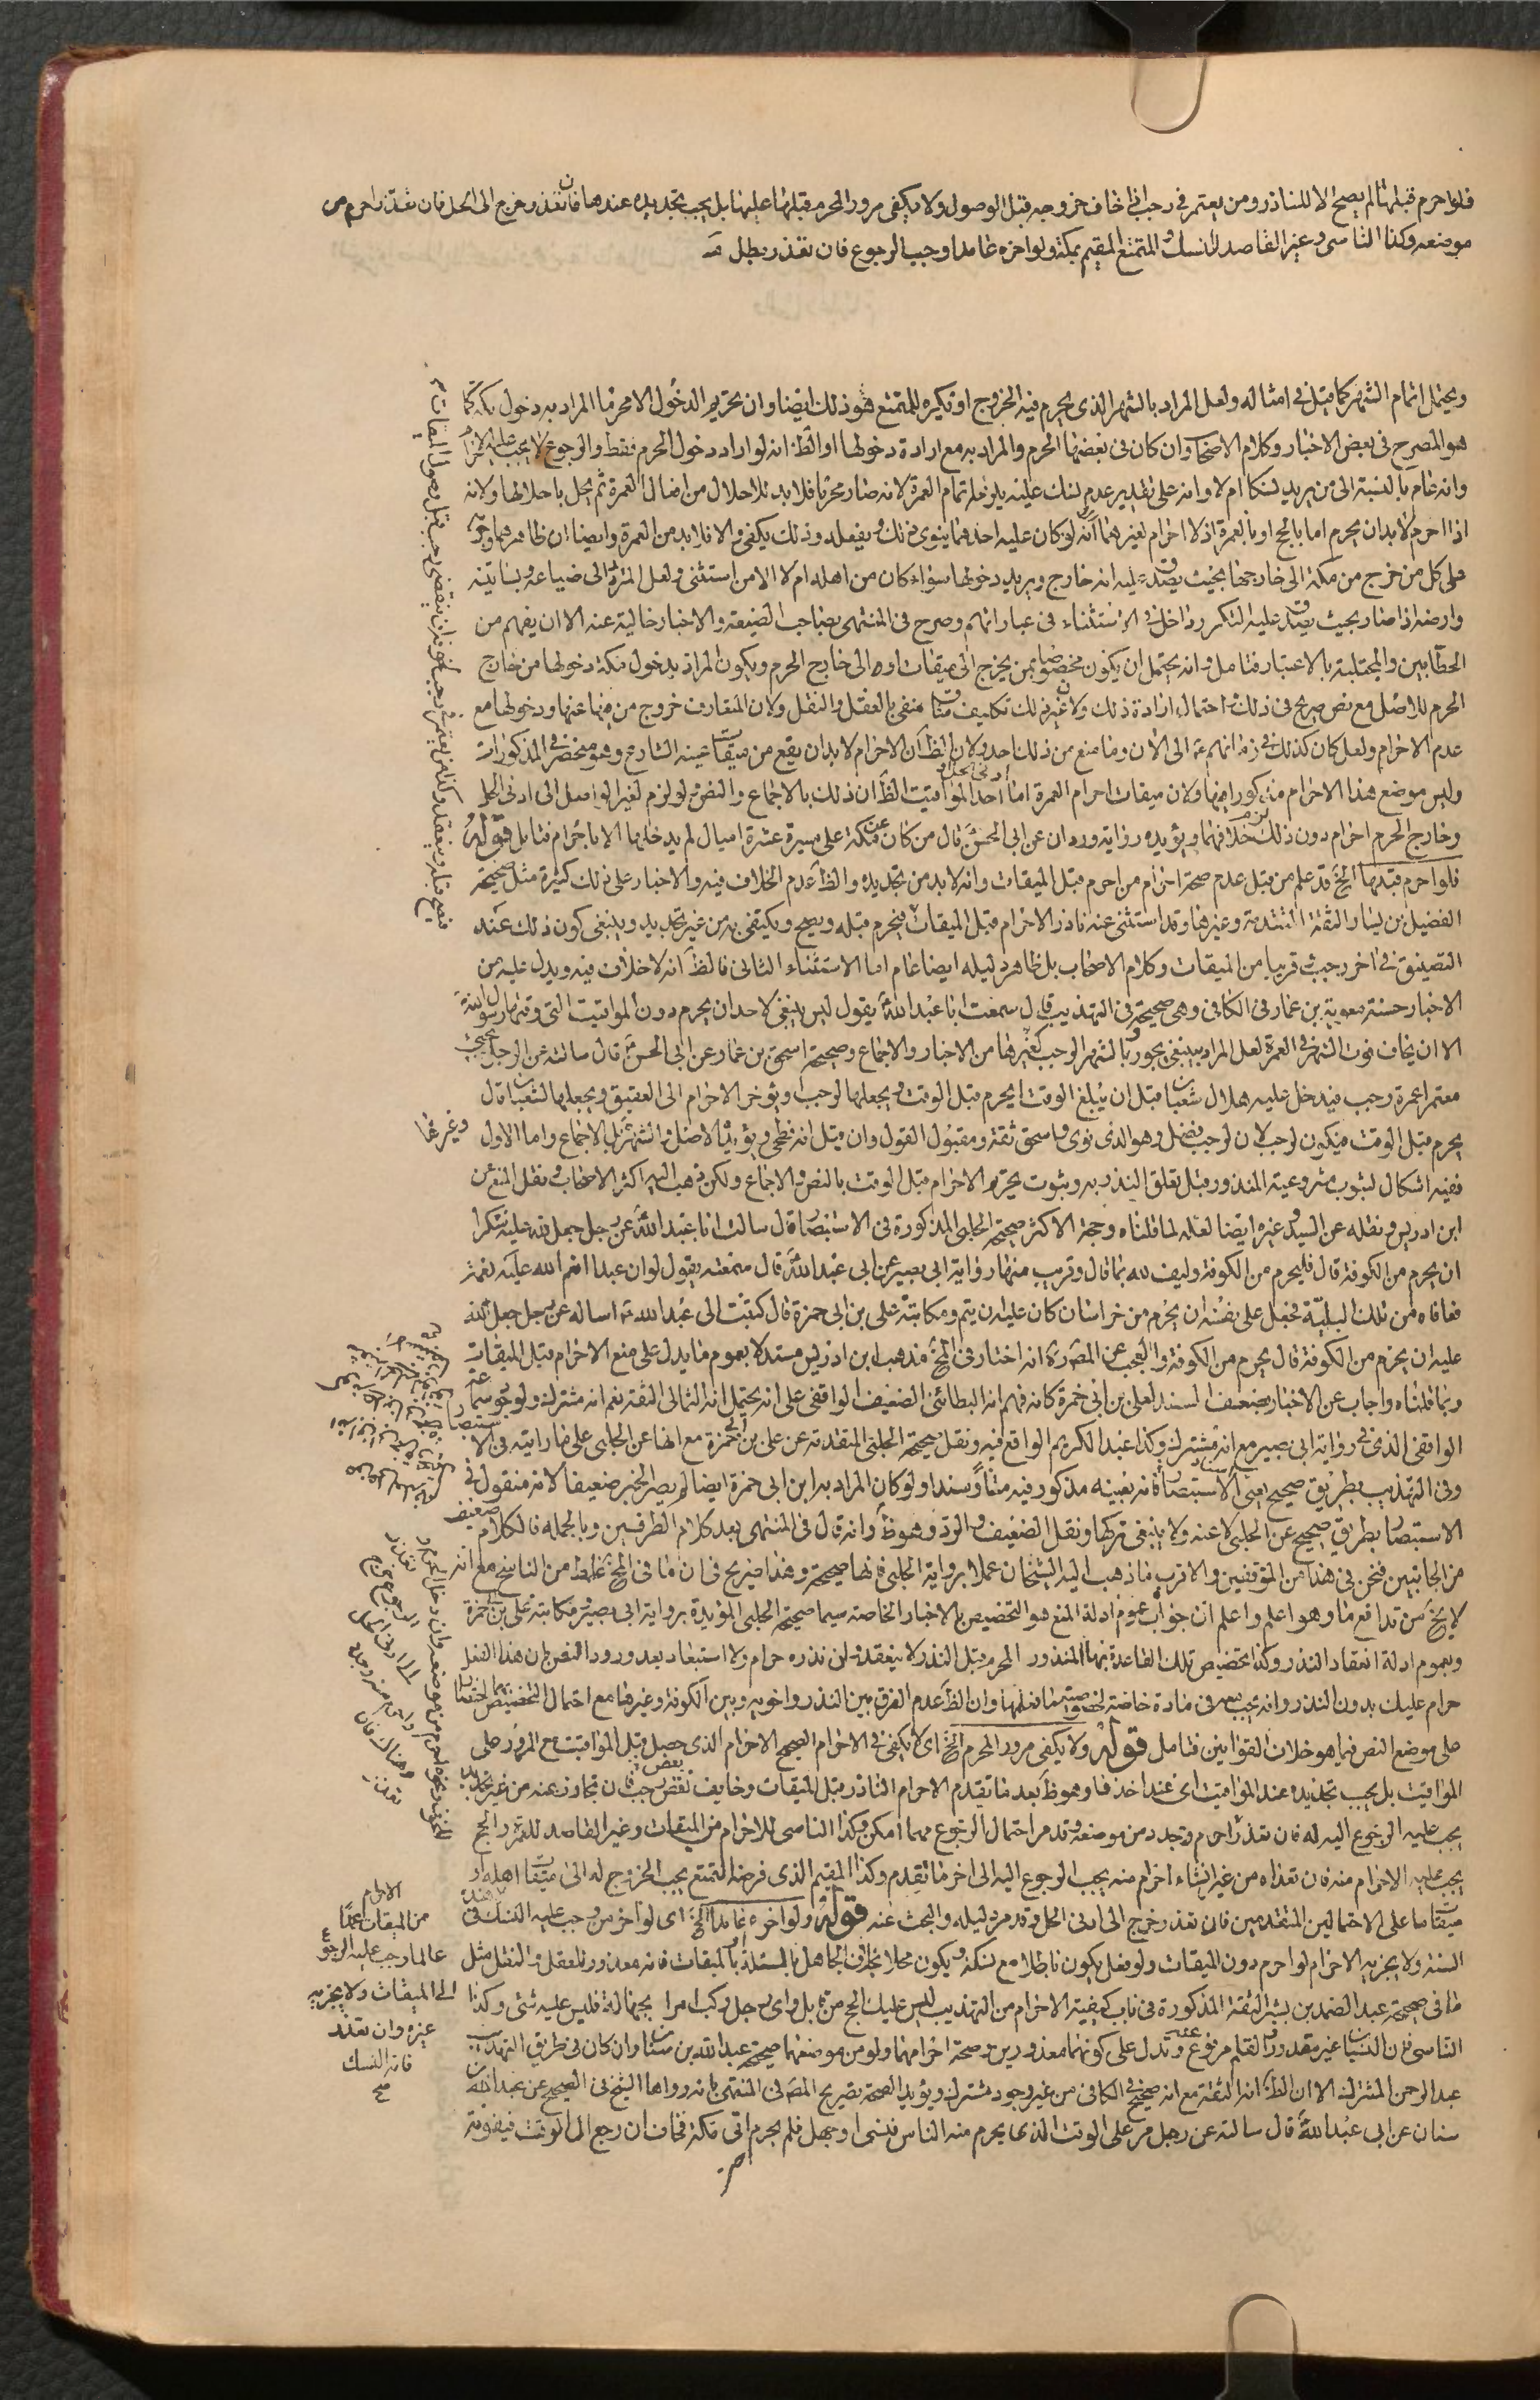 فلو احرم قبلها لم يصح الا للناذر ومن يعتمر في رجب اذا خاف خروجه قبل الوصول ولا يكفي مرور المحرم قبلها عليها بل يجب تجديده عندها فان تعذر خرج الى الحل فان تعذر احرم من
موضعه وكذا الناسي وغير القاصد للنسك والمتمتع المقيم بمكة ولو اخره عامدا وجب الرجوع فان تعذر بطل
ويحتمل اتمام الشهر كما قيل في امثاله ولعل المراد بالشهر الذي يحرم فيه الخروج او يكره للمتمتع هو ذلك ايضا وان تحريم الدخول الا محرما المراد به دخول مكة كما
هو المصرح في بعض الاخبار وكلام الاصحاب وان كان في بعضها الحرم والمراد به مع ارادة دخولها او الظ انه لو اراد دخول الحرم فقط والرجوع لا يجب عليه الاحرام
وانه عام بالنسبة الى من يريد نسكا ام لا وانه على تقدير عدم نسك عليه يلزمه تمام العمرة لانه صار محرما فلا بد للاحلال من افعال العمرة ثم يحل باحلالها ولانه
اذا احرم لا بد ان يحرم اما بالحج او بالعمرة اذ لا احرام لغيرهما انه لو كان عليه احدهما ينوي ذلك ويفعله وذلك يكفي والا فلا بد من العمرة وايضا ان ظاهرهما وجوبه
على كل من خرج من مكة الى خارجها بحيث يصدق عليه انه خارج ويريد دخولها سواء كان من اهله ام لا الا من استثنى ولعل المتردد الى ضياعه وبساتينه
وارضه اذا صار بحيث يصدق عليه التكرر داخل في الاستثناء في عباراتهم وصرح في المنتهى بصاحب الضيعة والاخبار خالية عنه الا ان يفهم من
الحطابين والمجتلبة بالاعتبار فتامل وانه يحتمل ان يكون مخصوصا بمن يخرج الى ميقات او الى خارج الحرم ويكون المراد بدخول مكة دخولها من خارج
الحرم للاصل مع نص صريح في ذلك واحتمال ارادة ذلك ولان غير ذلك تكليف شاق منفي بالعقل والنقل ولان المتعارف خروج من فيها عنها ودخولها مع
عدم الاحرام ولعل كان كذلك في زمانهم ع الى الان وما منع من ذلك احد ولان الظ ان الاحرام لا بد ان يقع من ميقات عينه الشارع وهو منحصر في المذكورات
وليس موضع هذا الاحرام مذكورا فيها ولان ميقات احرام العمرة اما احد المواقيت او ادنى الحل الظ ان ذلك بالاجماع والنص ولو لزم لغير الواصل الى ادنى الحل
وخارج الحرم احرام دون ذلك لزم خلافهما ويؤيده رواية وردان عن ابي الحسن ع قال من كان عن مكة على مسيرة عشرة اميال لم يدخلها الا باحرام فتامل قوله
فلو احرم قبلها الخ قد علم من قبل عدم صحة احرام من احرم قبل الميقات وانه لا بد من تجديده والظ عدم الخلاف فيه والاخبار على ذلك كثيرة مثل صحيحة
الفضيل بن يسار الثقة المتقدمة وغيرها وقد استثنى عنه ناذر الاحرام قبل الميقات فيحرم قبله ويصح ويكتفى به من غير تجديد وينبغي كون ذلك عند
التضيق في اخر رجب قريبا من الميقات وكلام الاصحاب بل ظاهر دليله ايضا عام اما الاستثناء الثاني فالظ انه لا خلاف فيه ويدل عليه من
الاخبار حسنة معوية بن عمار في الكافي وهي صحيحة في التهذيب قال سمعت ابا عبد الله ع يقول ليس ينبغي لاحد ان يحرم دون المواقيت التي وقتها رسول الله ص
الا ان يخاف فوت الشهر في العمرة لعل المراد بينبغي يجوز وبالشهر الرجب كغيرها من الاخبار والاجماع وصحيحة اسحق بن عمار عن ابي الحسن ع قال سالته عن الرجل يجيئ
معتمرا عمرة رجب فيدخل عليه هلال شعبان قبل ان يبلغ الوقت ايحرم قبل الوقت ويجعلها لرجب او يؤخر الاحرام الى العقيق ويجعلها لشعبان قال
يحرم قبل الوقت فيكون لرجب لان لرجب فضل وهو الذي نوى واسحق ثقة ومقبول القول وان قيل انه فطحي ويؤيده الاصل والشهرة بل الاجماع واما الاول
وغيرها
ففيه اشكال لثبوت مشروعية المنذور قبل تعلق النذر به وثبوت تحريم الاحرام قبل الوقت بالنص والاجماع ولكن ذهب اليه اكثر الاصحاب ونقل المنع من
ابن ادريس ونقله عن السيد وغيره ايضا لعله لما قلناه وحجة الاكثر صحيحة الحلبي المذكورة في الاستبصار قال سالت ابا عبد الله ع عن رجل جعل لله عليه شكرا
ان يحرم من الكوفة قال فليحرم من الكوفة وليف لله بما قال وقريب منها رواية ابي بصير عن ابي عبد الله ع قال سمعته يقول لو ان عبدا انعم الله عليه نعمة
فعافاه من تلك البلية فجعل على نفسه ان يحرم من خراسان كان عليه ان يتم ومكاتبة علي بن ابي حمزة قال كتبت الى عبد الله ع اساله عن رجل جعل لله
عليه ان يحرم من الكوفة قال يحرم من الكوفة والعجب عن المص ره انه اختار في المخ مذهب ابن ادريس مستدلا بعموم ما يدل على منع الاحرام قبل الميقات
وبما قلناه واجاب عن الاخبار بضعف السند لعلي بن ابي حمزة كانه فهم انه البطائني الضعيف الواقفي على انه يحتمل انه الثمالي الثقة نعم انه مشترك ولوجود سماعة
الواقفي الذي في رواية ابي بصير مع انه مشترك وكذا عبد الكريم الواقع فيه ونقل صحيحة الحلبي المتقدمة عن علي بن ابي حمزة مع انها عن الحلبي على ما رايته في الاستبصار
وفي التهذيب بطريق صحيح اعني اسناد الاستبصار فانه بعينه مذكور فيه متنا وسندا ولو كان المراد به ابن ابي حمزة ايضا لم يصر الخبر ضعيفا لانه منقول في
الاستبصار بطريق صحيح عن الحلبي لا عنه ولا ينبغي تركها ونقل الضعيف والرد وهو ظ وانه قال في المنتهى بعد كلام الطرفين وبالجملة فالكلام ضعيف
من الجانبين فنحن في هذا من المتوقفين والاقرب ما ذهب اليه الشيخان عملا برواية الحلبي فانها صحيحة وهذا صريح في ان ما في المخ غلط من الناسخ مع انه
لا يخ من تدافع ما وهو اعلم واعلم ان جواب عموم ادلة المنع هو التخصيص بالاخبار الخاصة سيما صحيحة الحلبي المؤيدة برواية ابي بصير ومكاتبة علي بن ابي حمزة
وبعموم ادلة انعقاد النذر وكذا تخصيص تلك القاعدة بها المنذور المحرم قبل النذر لا ينعقد وان نذره حرام ولا استبعاد بعد ورود النص بان هذا الفعل
حرام عليك بدون النذر وانه يجب معه في مادة خاصة لخصوصيتها نعلمها وان الظ عدم الفرق بين النذر واخويه وبين الكوفة وغيرها مع احتمال التخصيص بها لاختصاصها
على موضع النص فيما هو خلاف القوانين فتامل قوله ولا يكفي مرور المحرم الخ اي لا يكفي في الاحرام الصحيح الاحرام الذي حصل قبل المواقيت مع المرور على
المواقيت بل يجب تجديده عند المواقيت اي عند احدها وهو ظ بعد ما تقدم الا احرام الناذر قبل الميقات وخايف تقضى رجب فان تجاوز عنه من غير تجديد
يجب عليه الرجوع اليه له فان تعذر احرم وتجدد من موضعه وقد مر احتمال الرجوع مهما امكن وكذا الناسي للاحرام من الميقات وغير القاصد للعمرة والحج
يجب عليه الاحرام منه فان تعداه من غير انشاء احرام منه يجب الرجوع اليه الى اخر ما تقدم وكذا المقيم الذي فرضه التمتع يجب الخروج له الى ميقات اهله او
ميقات ما على الاحتمالين المتقدمين فان تعذر خرج الى ادنى الحل وقد مر دليله والبحث عنه قوله ولو اخره عامدا الخ اي لو اخر من وجب عليه النسك في هذه
السنة ولا يجزيه الاحرام لو احرم دون الميقات ولو فعل يكون باطلا مع نسكه ويكون محلا بخلاف الجاهل بالمسئلة او بالميقات فانه معذور للعقل والنقل مثل
ما في صحيحة عبد الصمد بن بشير الثقة المذكورة في باب كيفية الاحرام من التهذيب ليس عليك الحج من قابل واي رجل ركب امرا بجهالة فليس عليه شئ وكذا
الناسي فان النسيان غير مقدور والقلم مرفوع عنه وتدل على كونهما معذورين وصحة احرامهما ولو من موضعهما صحيحة عبد الله بن سنان وان كان في طريق التهذيب
عبد الرحمن المشترك الا ان الظ انه الثقة مع انه صحيح في الكافي من غير وجود مشترك ويؤيد الصحة تصريح المص في المنتهى بانه رواها الشيخ في الصحيح عن عبد الله بن
سنان عن ابي عبد الله ع قال سالته عن رجل مر على الوقت الذي يحرم منه الناس فنسى او جهل فلم يحرم اتى مكة فخاف ان رجع الى الوقت فيفوته
الاحرام
من الميقات عمدا
عالما وجب عليه الرجوع
الى الميقات ولا يجزيه
غيره وان تعذر
فاته النسك
صح